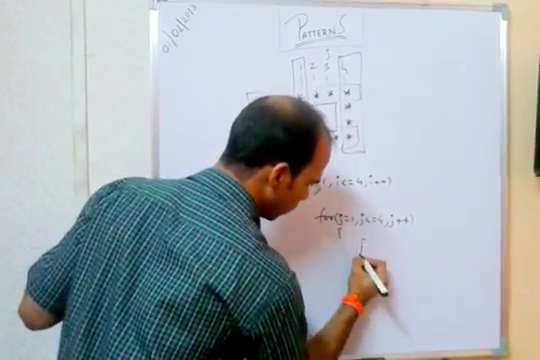 01/02/2023
PATTERNS
j
1 2 3 4
1 1 1
* * *
*
* *
1, i<=4, i++)
for(j=1, j<=4, j++)
{